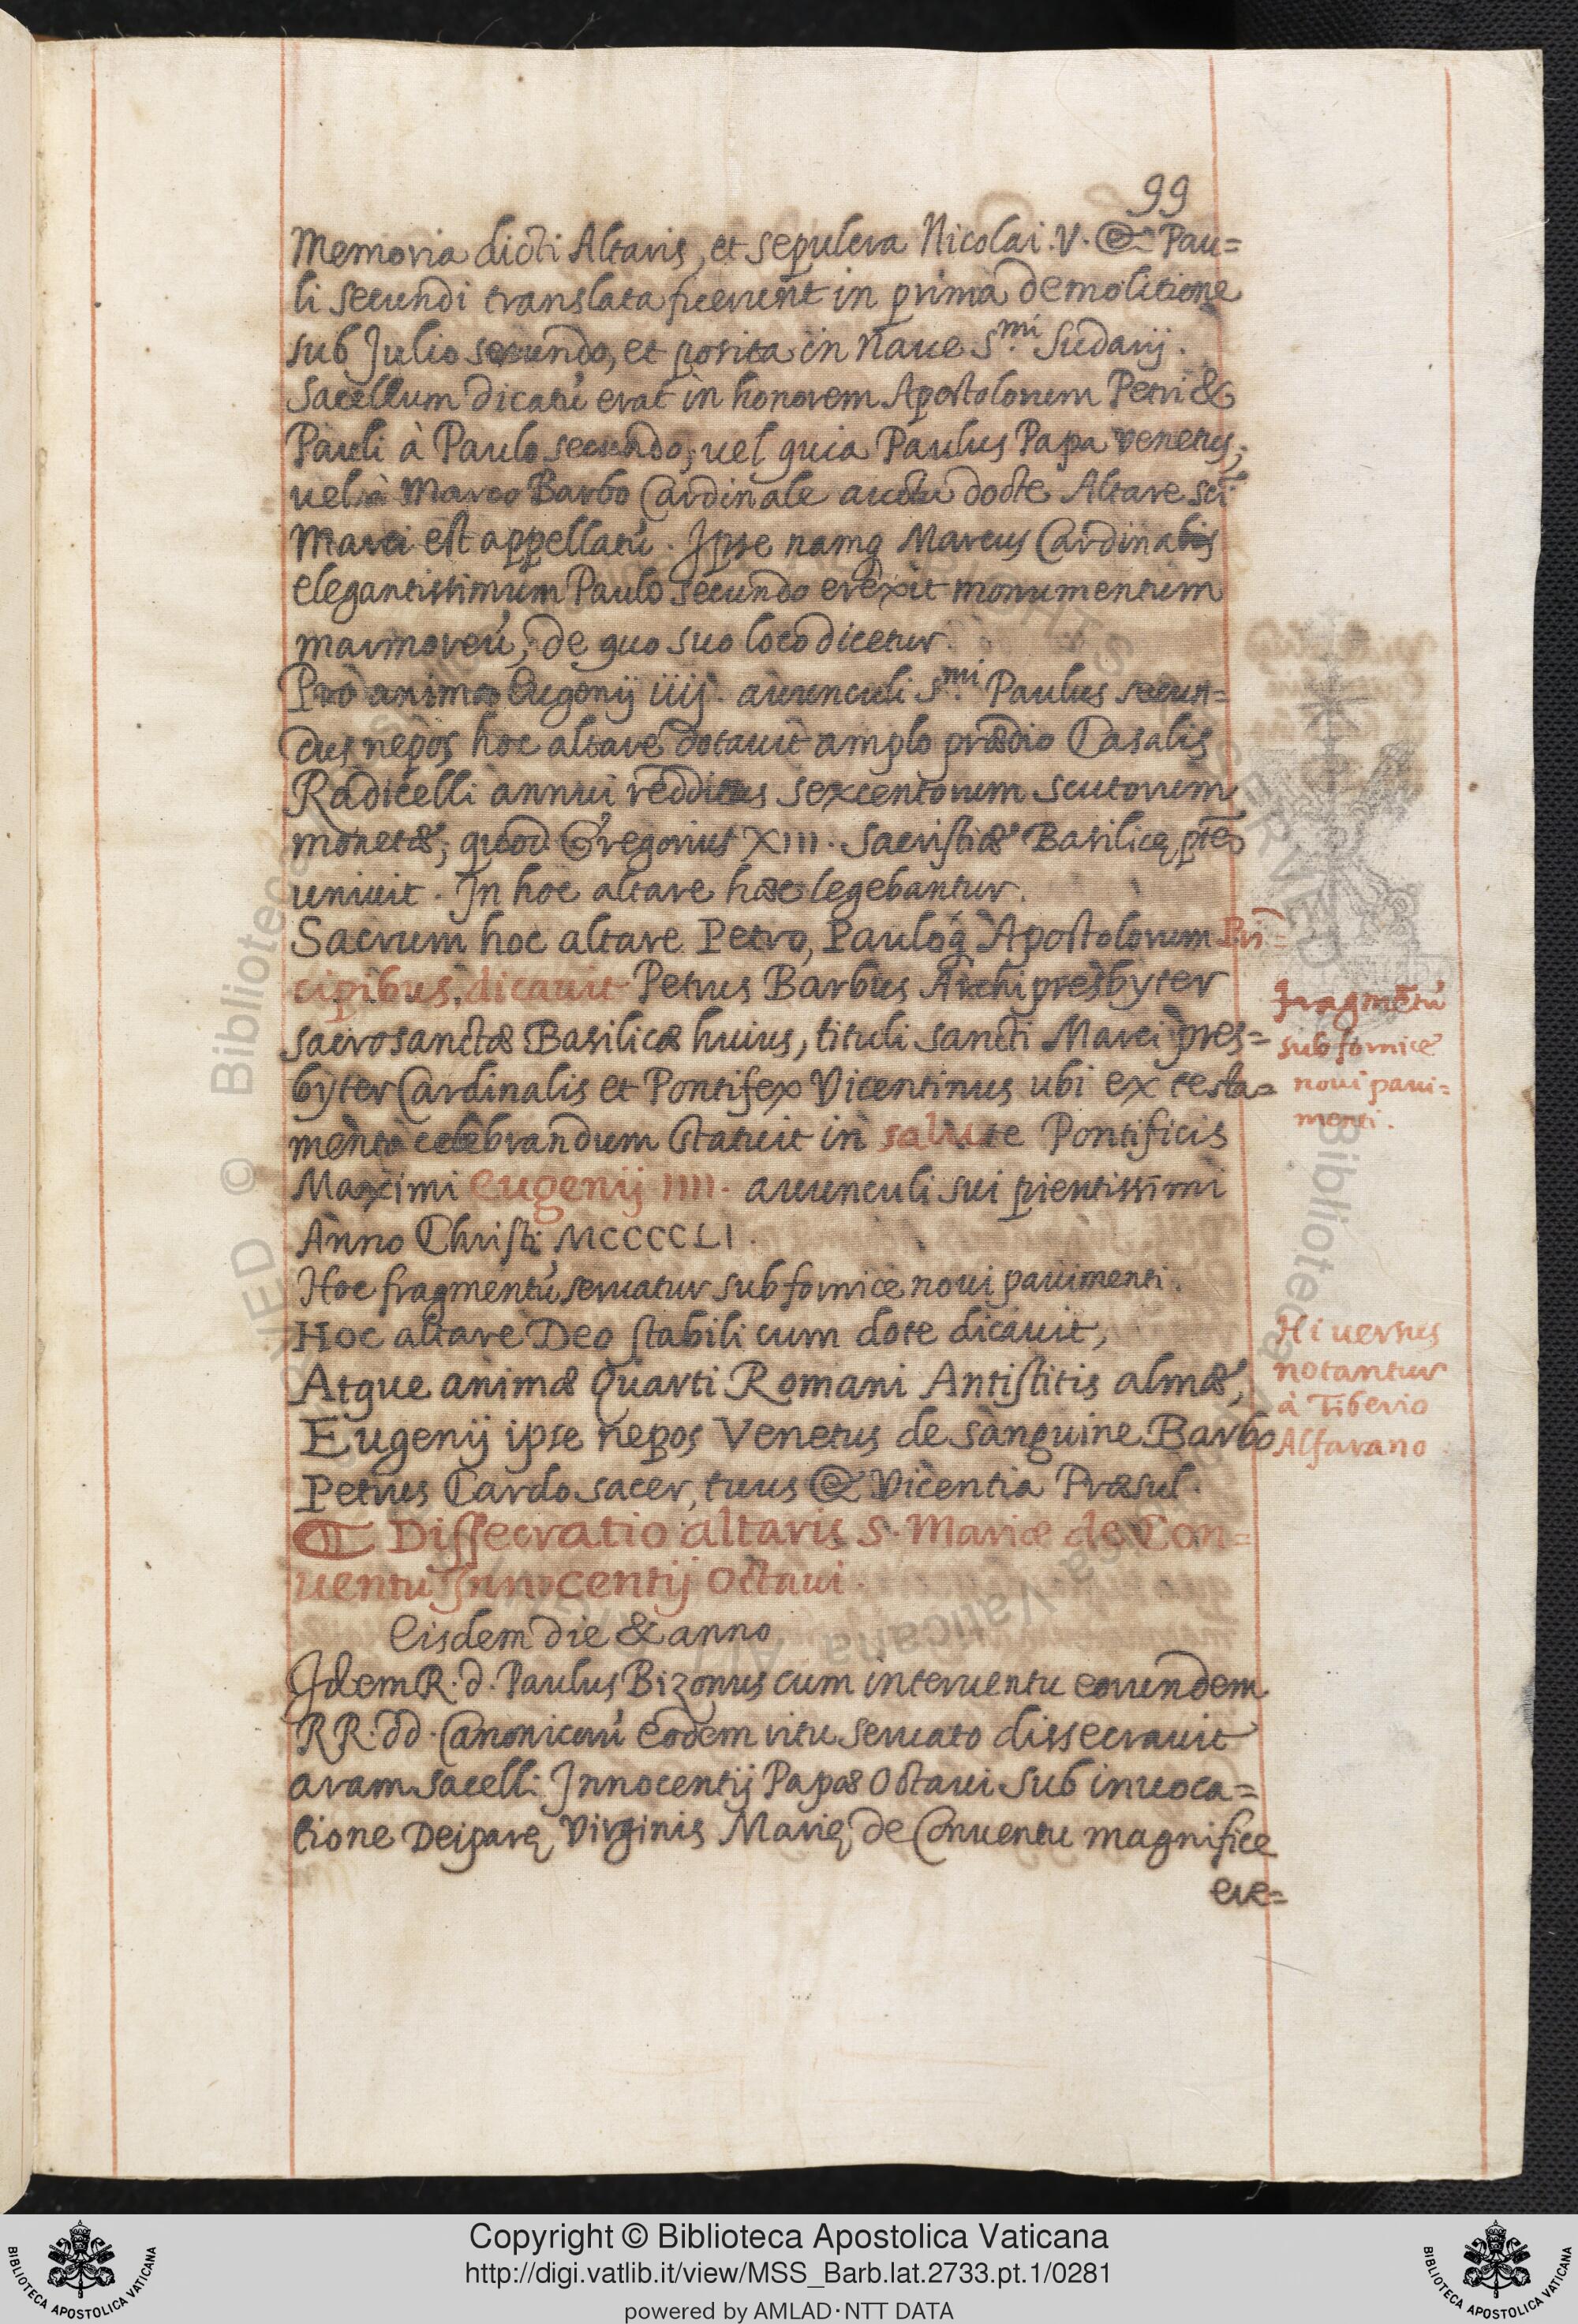 99
Memoria dicti Altaris, et sepulcra Nicolai .V. & Pau=
li secundi translata fuerunt in prima demolitione
sub Julio secundo, et posita in naue S.mi Sudarij.
Sacellum dicatū erat in honorem Apostolorum Petri &
Pauli à Paulo secundo, uel quia Paulus Papa venetus;
uel à Marco Barbo Cardinale aucta dote Altare sc̄i
Marci est appellatū. Ipse namq Marcus Cardinalis
elegantissimum Paulo secundo erexit monumentum
marmoreū, de quo suo loco dicetur.
Pro anima Eugenij iiij. auunculi S.mi Paulus secun=
dus nepos hoc altare dotauit amplo prædio Casalis
Radicelli annui redditus sexcentorum scutorum
monetæ, quod Gregorius XIII. Sacristiæ Basilicę
uniuit. In hoc altare hæc legebantur.
Sacrum hoc altare Petro, Pauloq́ Apostolorum Prī=
cipibus, dicauit Petrus Barbus Archipresbyter
sacrosanctæ Basilicæ huius, tituli sancti Marci pres=
byter Cardinalis et Pontifex Vicentinus ubi ex testa=
mento celebrandum statuit in salute Pontificis
Maximi Eugenij IIII. auunculi sui pientissimi
Anno Christi MCCCCLI.
Hoc fragmentū seruatur sub fornice noui pauimenti.
Hoc altare Deo stabili cum dote dicauit,
Atque animæ Quarti Romani Antistitis almæ,
Eugenij ipse nepos Venetus de sanguine Barbo
Petrus Cardo sacer, tuus & Vicentia Præsul.
Dissecratio altaris S. Mariæ de Con=
uentu Innocentij Octaui.
Eisdem die & anno
Idem R. d. Paulus Bizonus cum interuentu eorundem
RR. dd. Canonicorū eodem ritu seruato dissecrauit
aram sacelli Innocentij Papæ Octaui sub inuoca=
tione Deiparę Virginis Marię de Conuentu magnifice
ere=
fragmētū
sub fornice
noui paui=
menti.
Hi uersus
notantur
à Tiberio
Alfarano
Copyright © Biblioteca Apostolica Vaticana
http://digi.vatlib.it/view/MSS_Barb.lat.2733.pt.1/0281
powered by AMLAD·NTT DATA
BIBLIOTECA APOSTOLICA VATICANA
BIBLIOTECA APOSTOLICA VATICANA